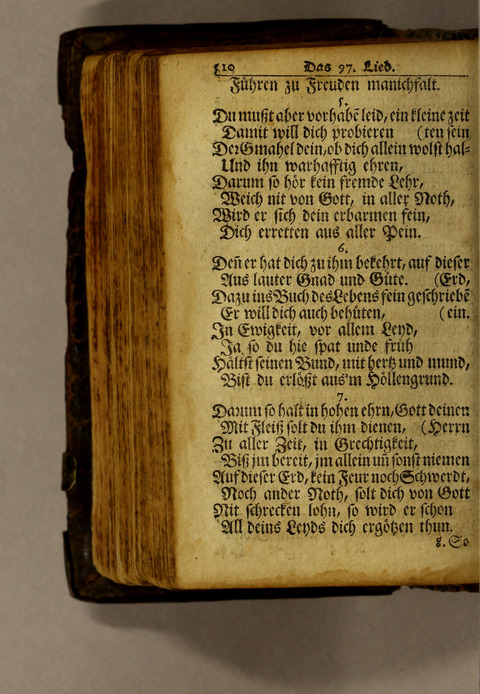 510 Das 97. Lied.
Führen zu Freuden manichfalt.
5.
Du mußt aber vorhabē leid, ein kleine zeit
Damit will dich probieren (ten sein
Der Gmahel dein, ob dich allein wolst hal-
Und ihn warhafftig ehren,
Darum so hör kein fremde Lehr,
Weich nit von Gott, in aller Noth,
Wird er sich dein erbarmen fein,
Dich erretten aus aller Pein.
6.
Deñ er hat dich zu ihm bekehrt, auf dieser
Aus lauter Gnad und Güte. (Erd,
Dazu ins Buch des Lebens fein geschriebē
Er will dich auch behüten, (ein.
In Ewigkeit, vor allem Leyd,
Ja so du hie spat unde früh
Hältst seinen Bund, mit hertz und mund,
Bist du erlößt aus'm Höllengrund.
7.
Darum so halt in hohen ehrn, Gott deinen
Mit Fleiß solt du ihm dienen, (Herrn
Zu aller Zeit, in Grechtigkeit,
Biß jm bereit, jm allein uñ sonst niemen
Auf dieser Erd, kein Feur noch Schwerdt,
Noch ander Noth, solt dich von Gott
Mit schrecken lohn, so wird er schon
All deins Leyds dich ergötzen thun.
8. So